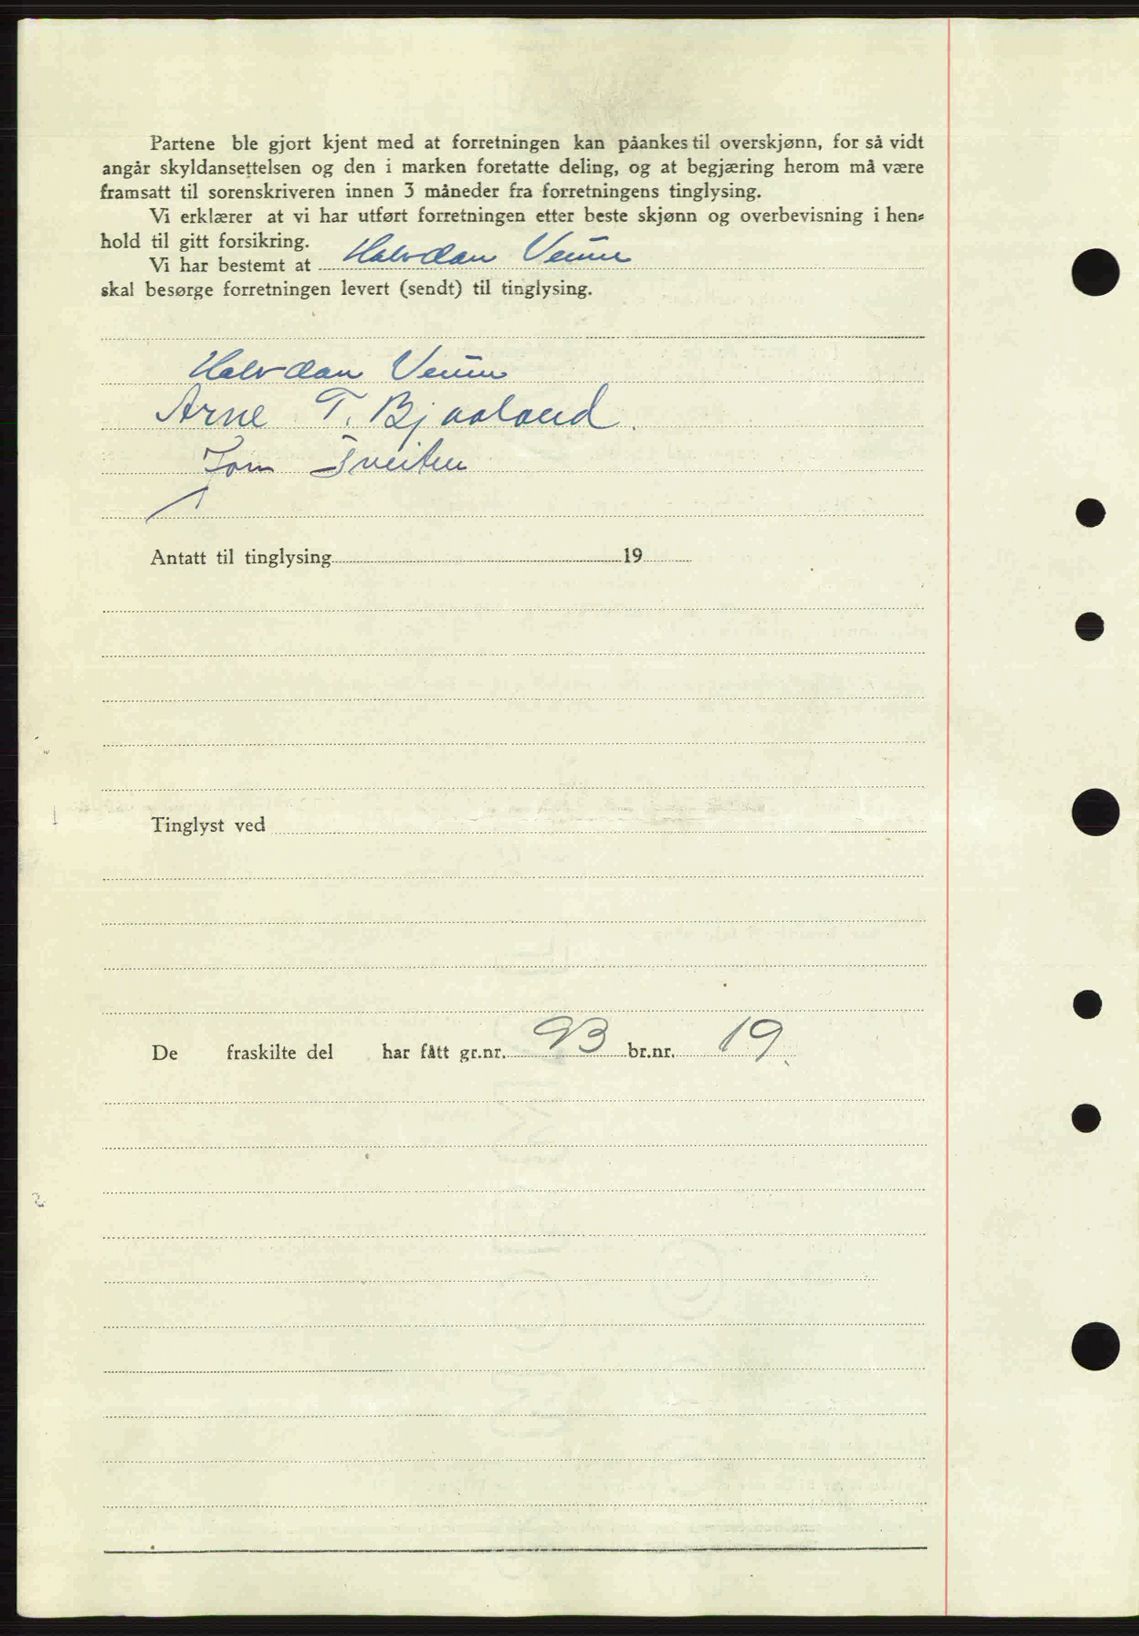 Partene ble gjort kjent med at forretningen kan påankes til overskjønn, for så vidt
angår skyldansettelsen og den i marken foretatte deling, og at begjæring herom må være
framsatt til sorenskriveren innen 3 måneder fra forretningens tinglysing.
Vi erklærer at vi har utført forretningen etter beste skjønn og overbevisning i hen-
hold til gitt forsikring.
Vi har bestemt at Halvdan Venum
skal besørge forretningen levert (sendt) til tinglysing.
Halvdan Venum
Arne T. Bjaaland.
Jom Tveiten
Antatt til tinglysing 19
Tinglyst ved
De fraskilte del har fått gr.nr. 93 br.nr. 19.